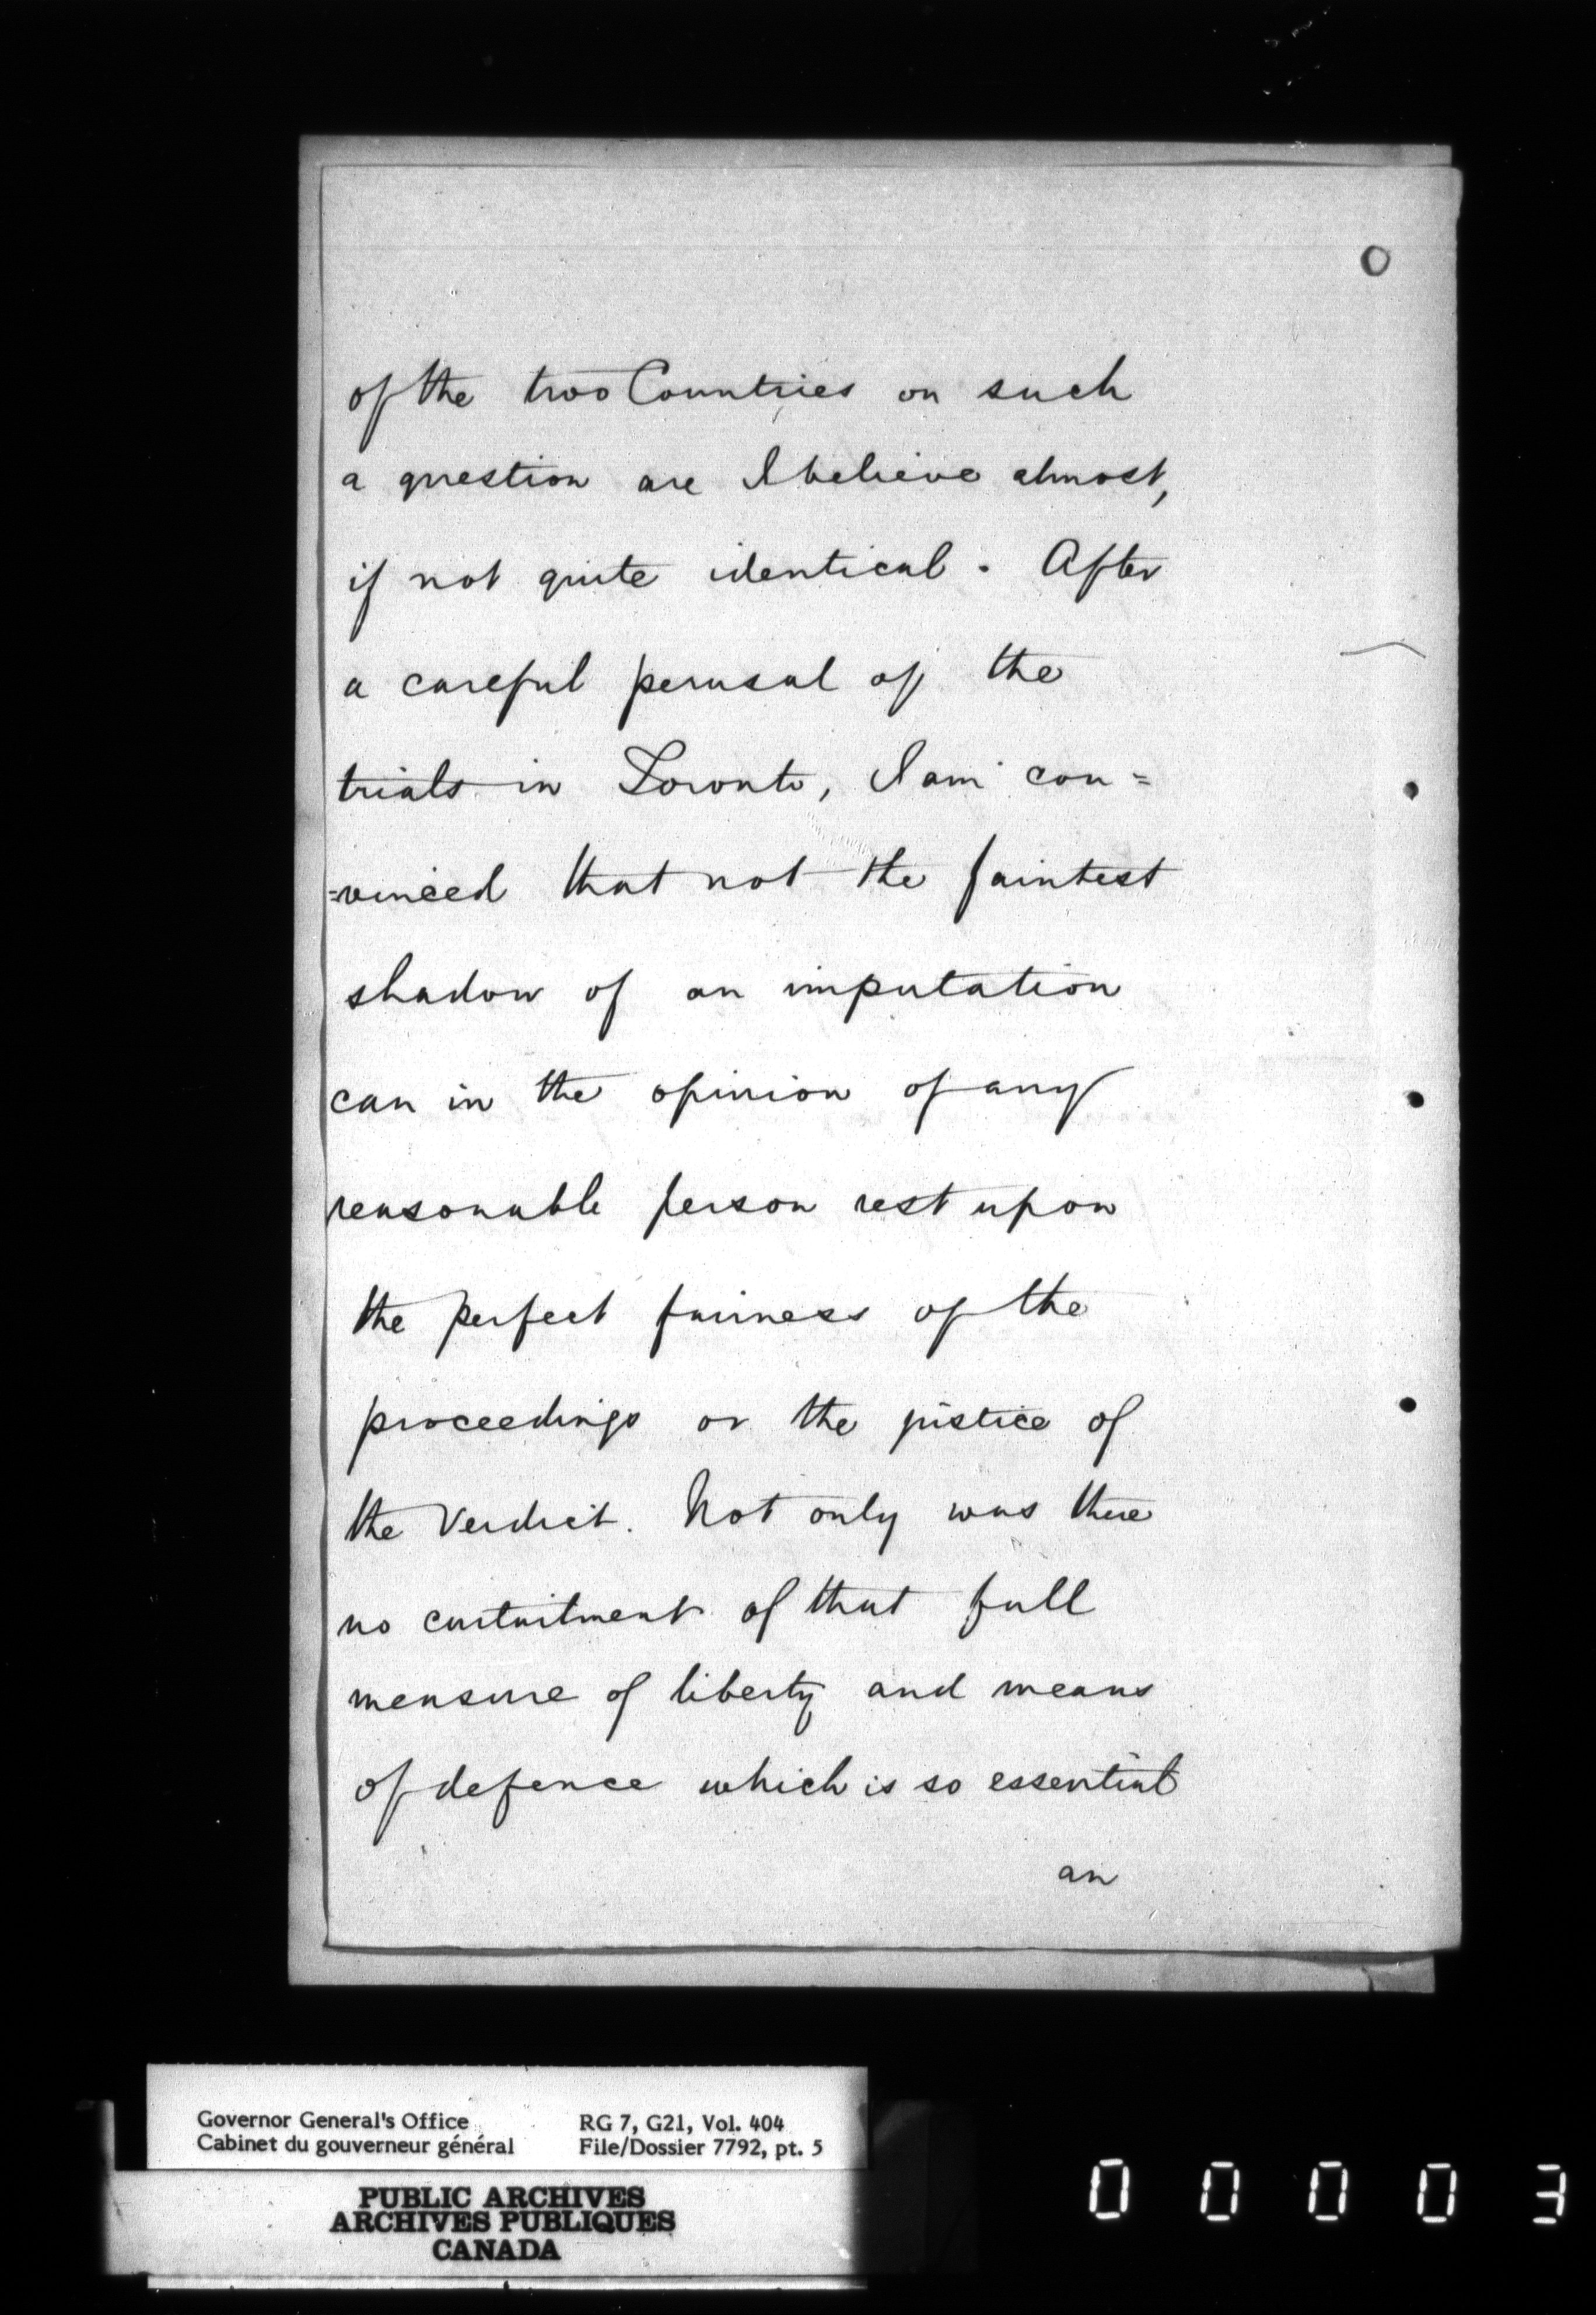 0
of the two Countries on such
a question are I believe almost,
if not quite identical. After
a careful perusal of the
trials in Toronto, I am con=
=vinced that not the faintest
shadow of an imputation
can in the opinion of any
reasonable person rest upon
the perfect fairness of the
proceedings or the justice of
the Verdict. Not only was there
no curtailment of that full
measure of liberty and means
of defence which is so essential
an
Governor General's Office
Cabinet du gouverneur général
RG 7, G21, Vol. 404
File/Dossier 7792, pt. 5
PUBLIC ARCHIVES
ARCHIVES PUBLIQUES
CANADA
0 0 0 0 3